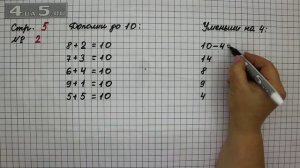 4 a 5 GDZ
Стр. 5
№ 2
Дополни до 10:
8 + 2 = 10
7 + 3 = 10
6 + 4 = 10
9 + 1 = 10
5 + 5 = 10
Уменьши на 4:
10 - 4
14
8
9
4